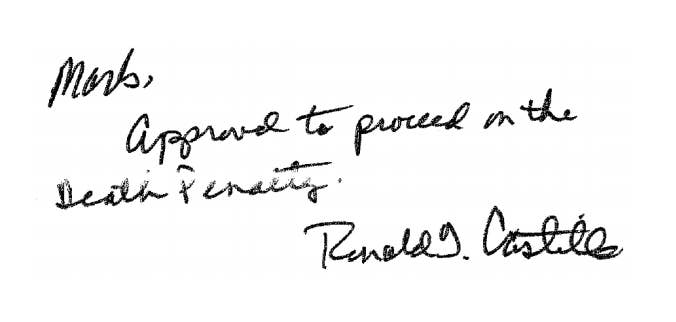 Mark,
Approved to proceed on the
Death Penalty.
Ronald D. Castille